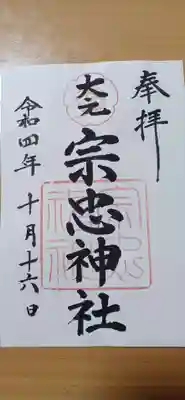 奉拝
大元
宗忠神社
宗忠
神社
令和四年 十月十六日